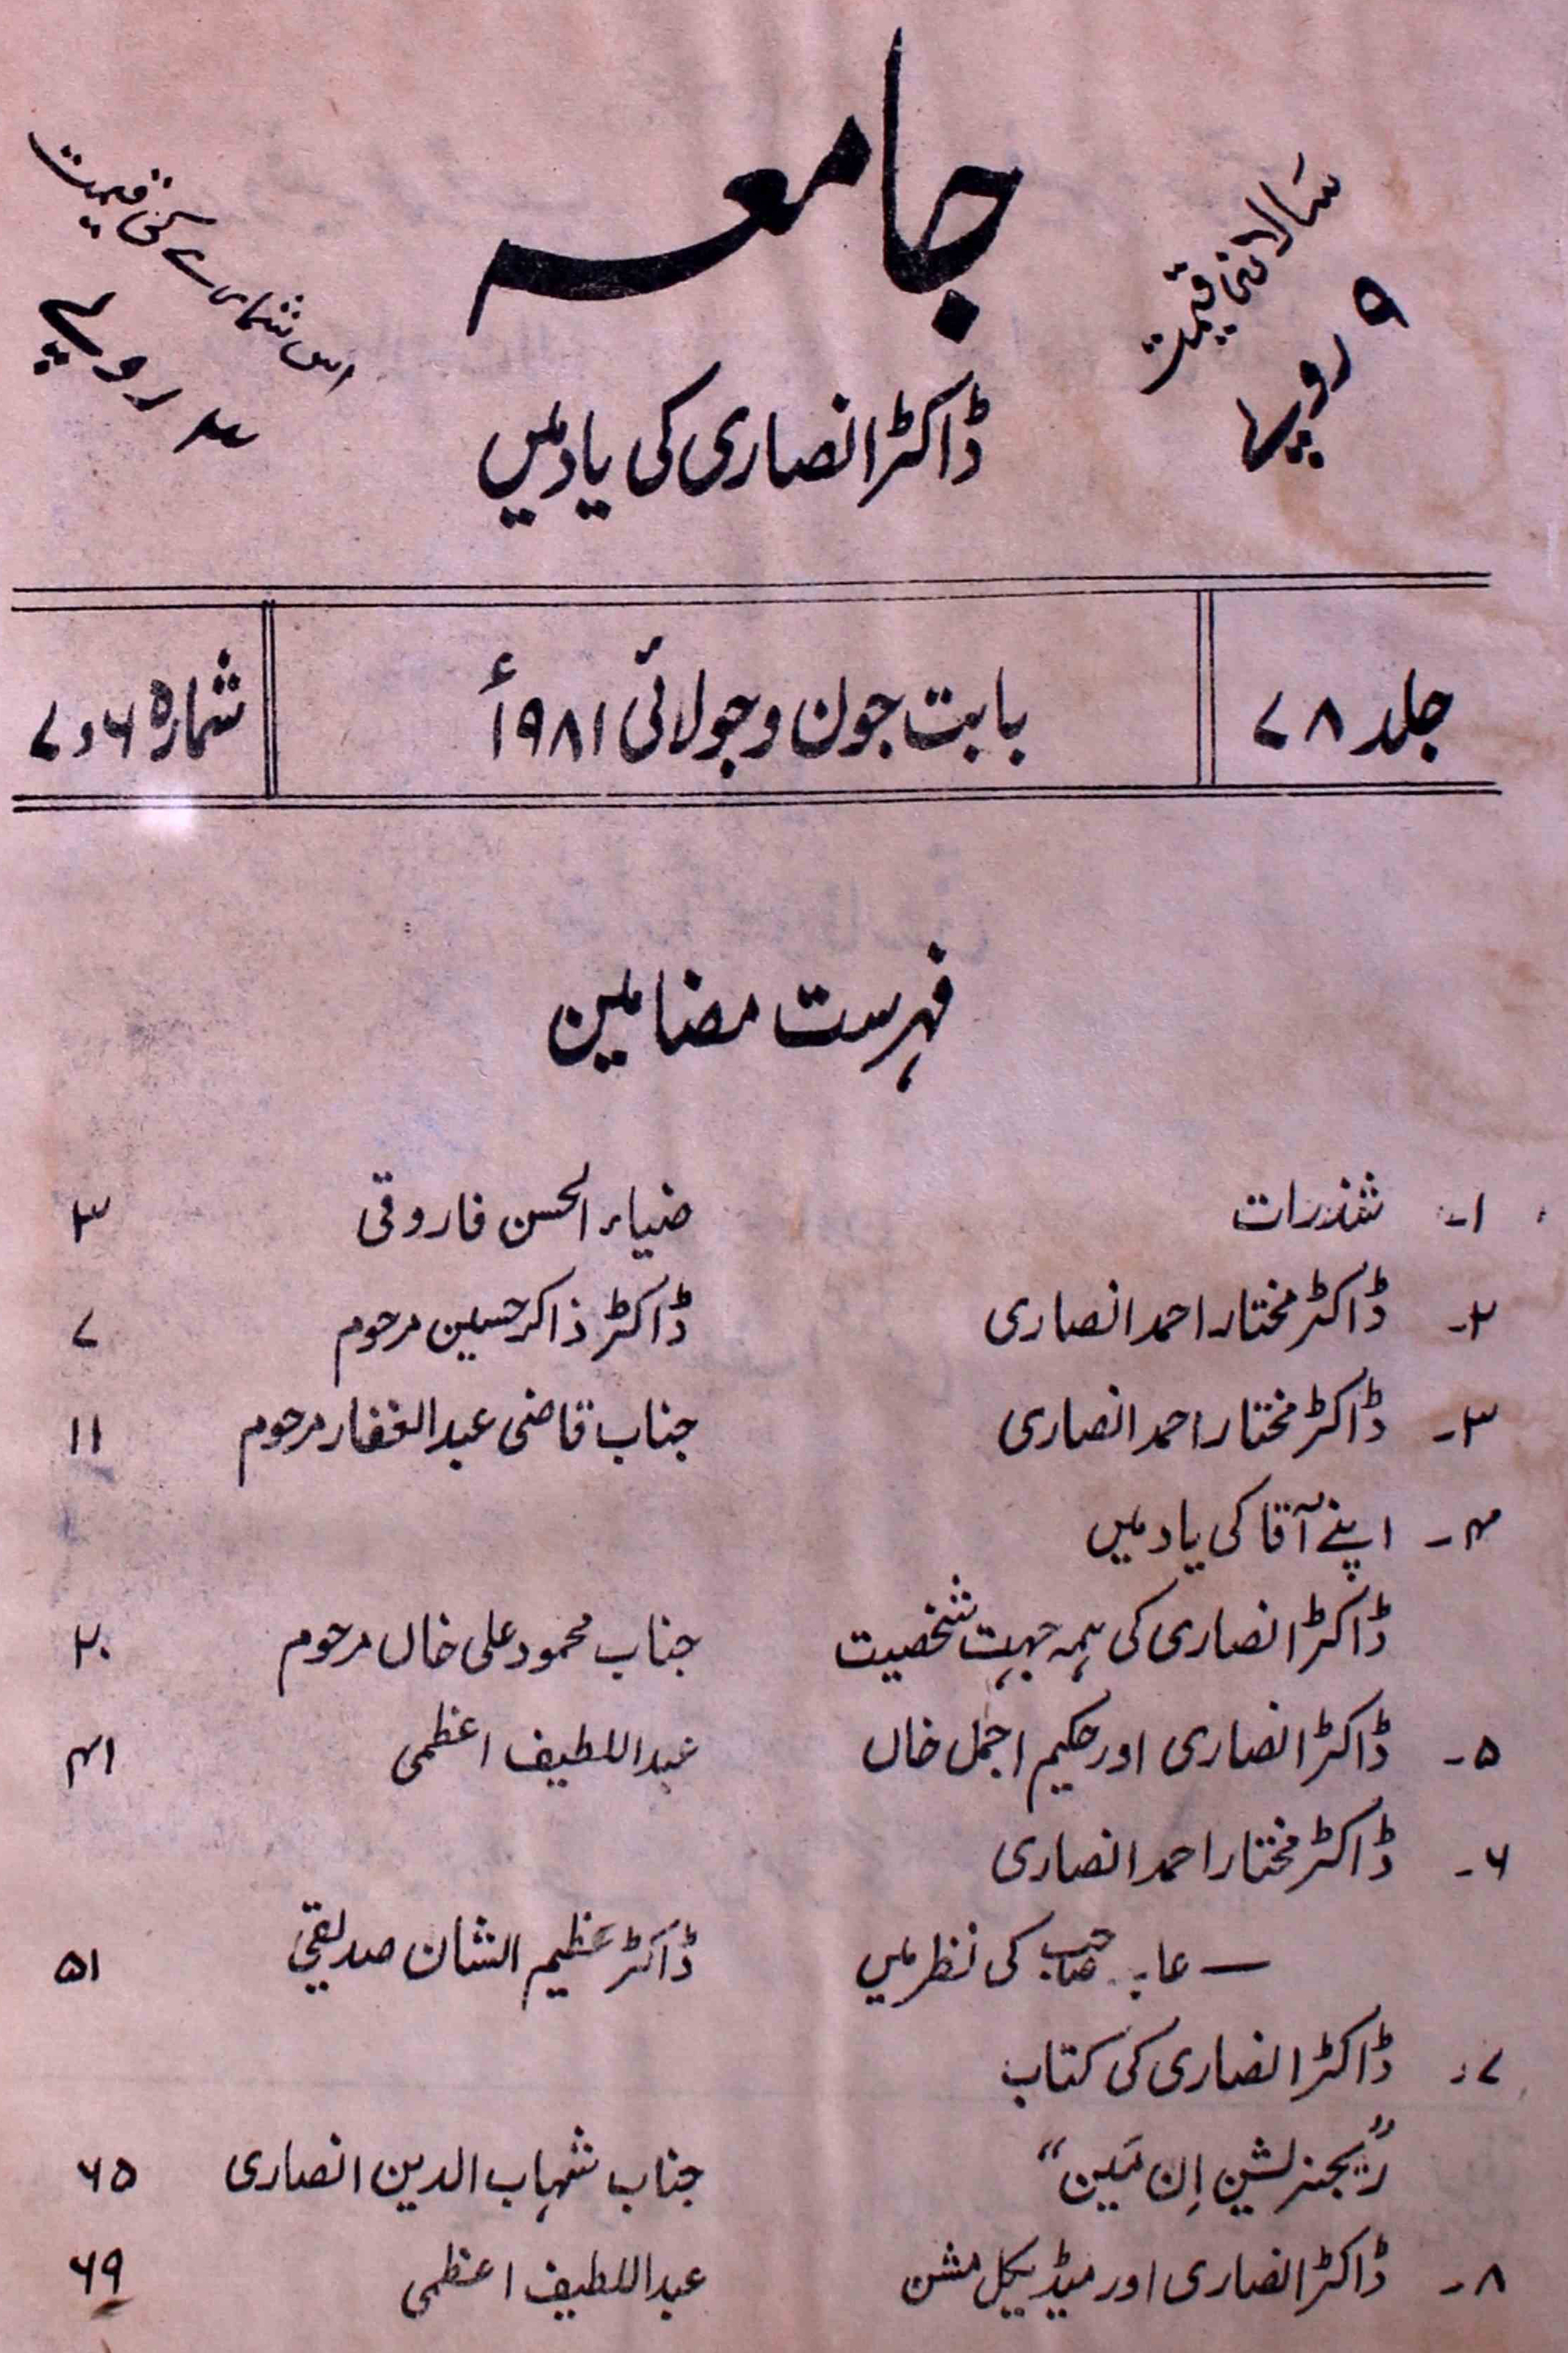 جامعہ
سالانہ قیمت
۹ روپیہ
اس شمارے کی قیمت
۴ روپے
ڈاکٹر انصاری کی یاد میں
جلد ۷۸
بابت جون و جولائی ۱۹۸۱ء
شمارہ ۶ و ۷
فہرست مضامین
۱۔ شذرات ضیاء الحسن فاروقی ۳
۲۔ ڈاکٹر مختار احمد انصاری ڈاکٹر ذاکر حسین مرحوم ۷
۳۔ ڈاکٹر مختار احمد انصاری جناب قاضی عبدالغفار مرحوم ۱۱
۴۔ اپنے آقا کی یاد میں
ڈاکٹر انصاری کی ہمہ جہت شخصیت جناب محمود علی خاں مرحوم ۲۰
۵۔ ڈاکٹر انصاری اور حکیم اجمل خاں عبداللطیف اعظمی ۴۱
۶۔ ڈاکٹر مختار احمد انصاری
— صاحب کی نظر میں ڈاکٹر عظیم الشان صدیقی ۵۱
۷۔ ڈاکٹر انصاری کی کتاب
”ریجنریشن اِن مَین“ جناب شہاب الدین انصاری ۶۵
۸۔ ڈاکٹر انصاری اور میڈیکل مشن عبداللطیف اعظمی ۶۹